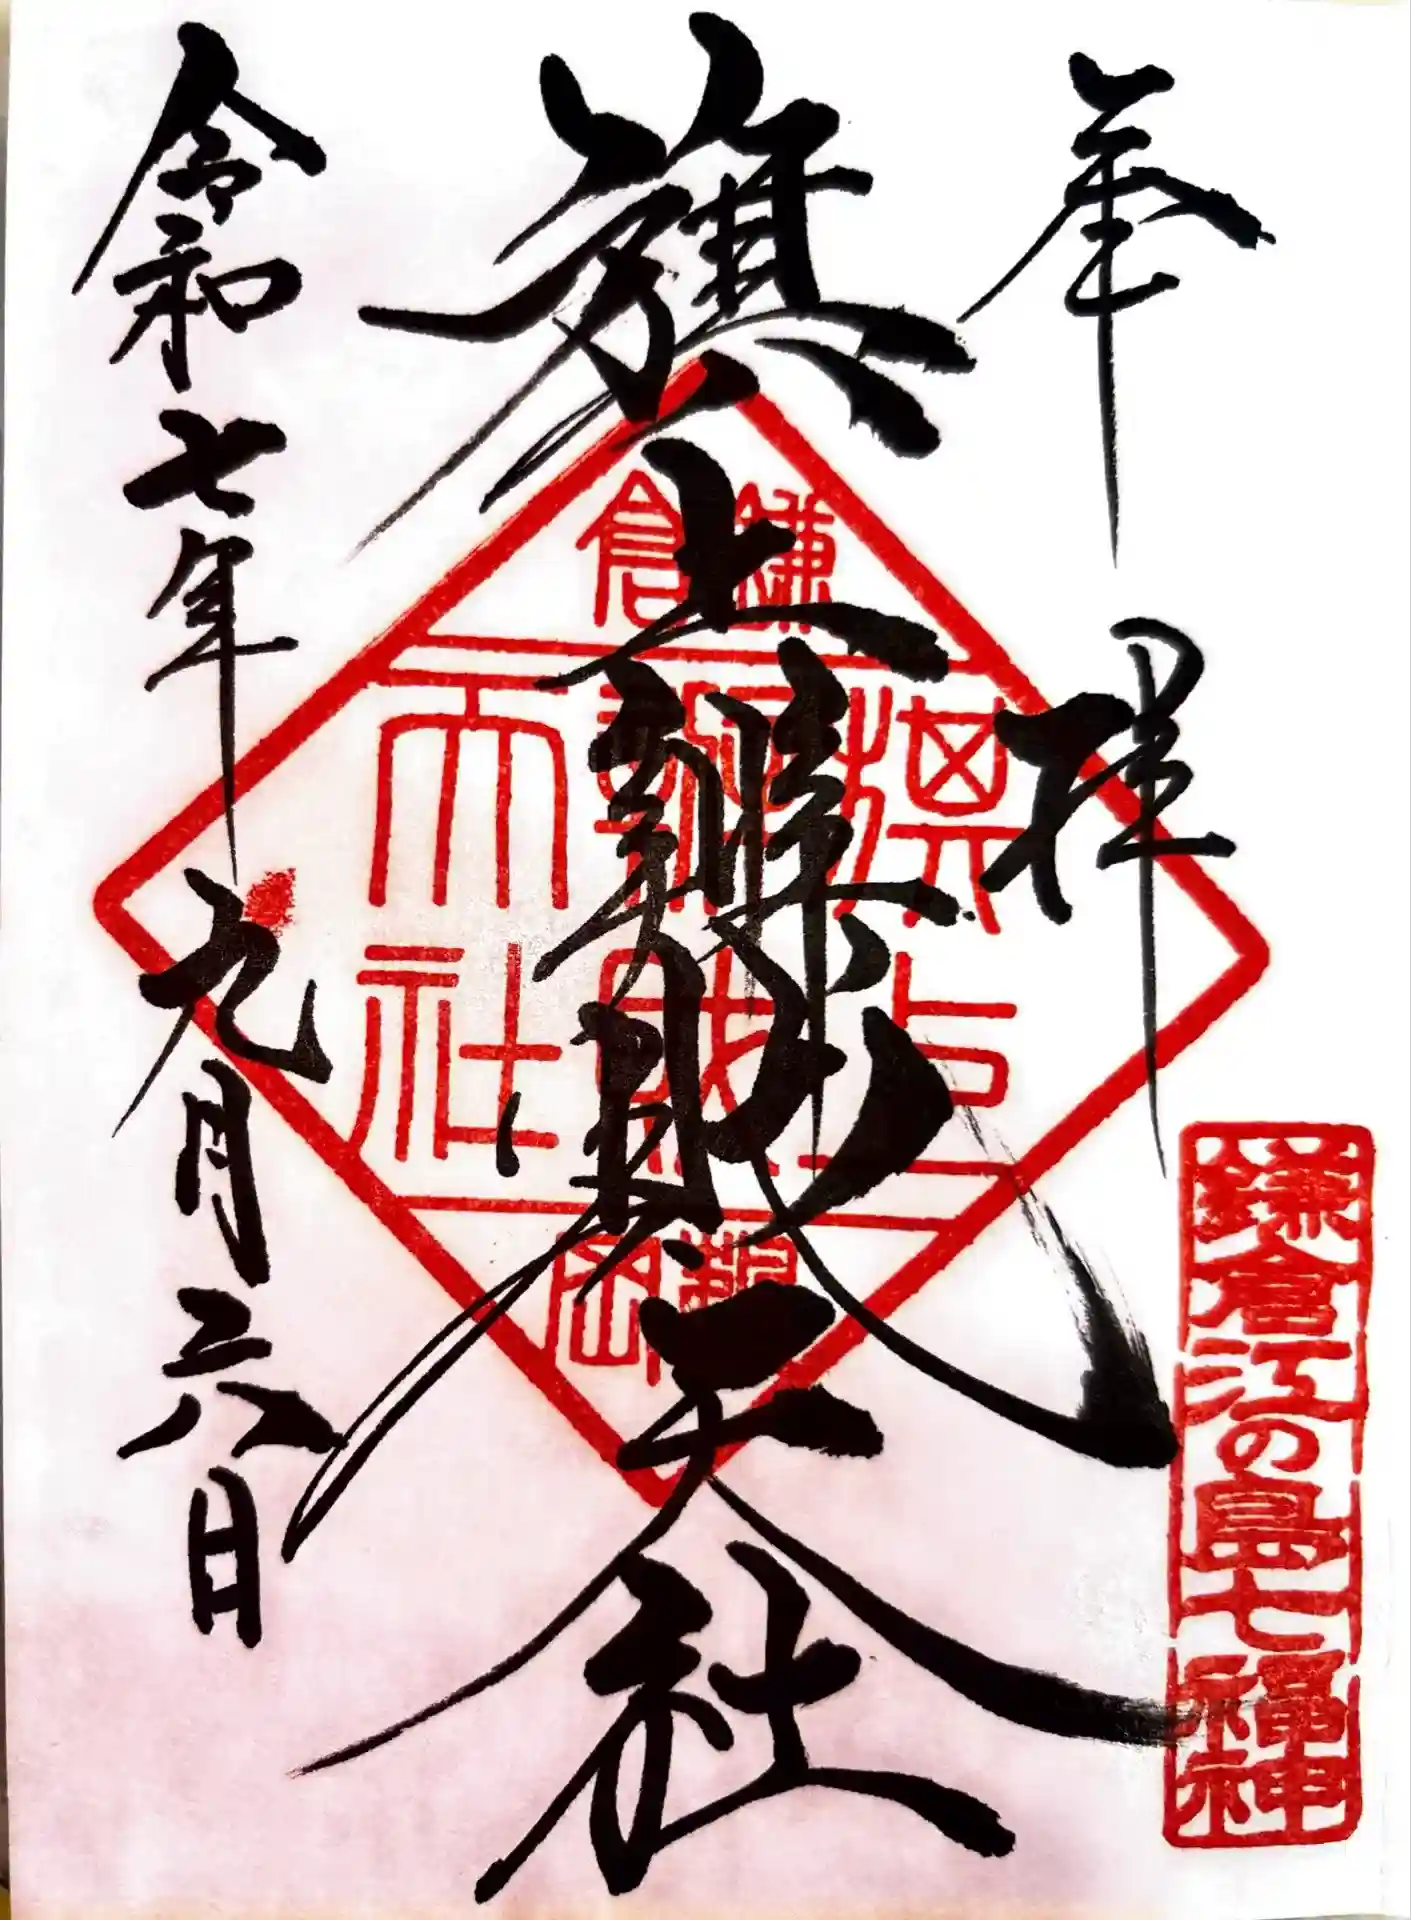 奉拝
鎌倉江の島七福神
旗上辨財天社
鎌倉
旗上
辨財
天社
鶴岡
令和七年九月二八日